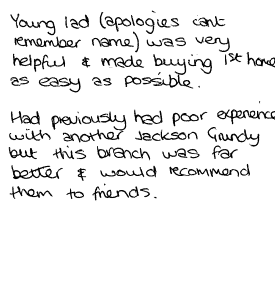 Young lad (apologies cant
remember name) was very
helpful & made buying 1st home
as easy as possible.
Had previously had poor experience
with another Jackson Grundy
but this branch was far
better & would recommend
them to friends.